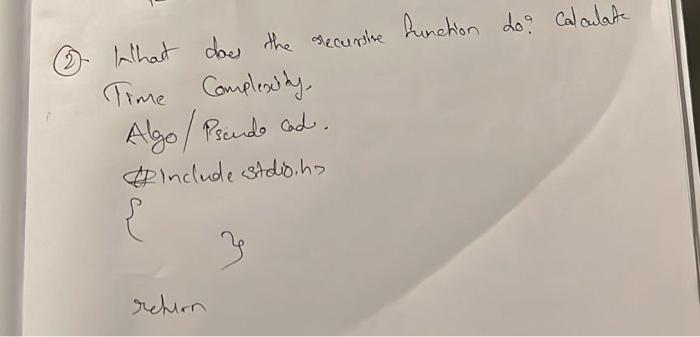 ②- What does the recursive function do? Calculate
Time Complexity.
Algo/Pseudo cod.
#Include <stdio.h>
{
}
return